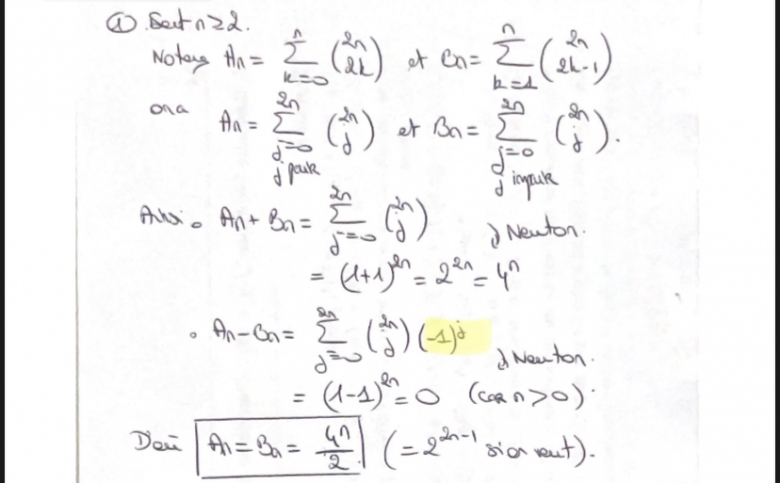 ① Soit n ≥ 2.
Notons An = ∑_{k=0}^{n} (2n 2k) et Bn = ∑_{k=1}^{n} (2n 2k-1)
on a An = ∑_{j=0, j paire}^{2n} (2n j) et Bn = ∑_{j=0, j impaire}^{2n} (2n j).
Ainsi • An + Bn = ∑_{j=0}^{2n} (2n j) ) Newton.
= (1+1)^{2n} = 2^{2n} = 4^n
• An - Bn = ∑_{j=0}^{2n} (2n j) (-1)^j ) Newton.
= (1-1)^{2n} = 0 (car n > 0).
D'où An = Bn = 4^n/2 (= 2^{2n-1} si on veut).